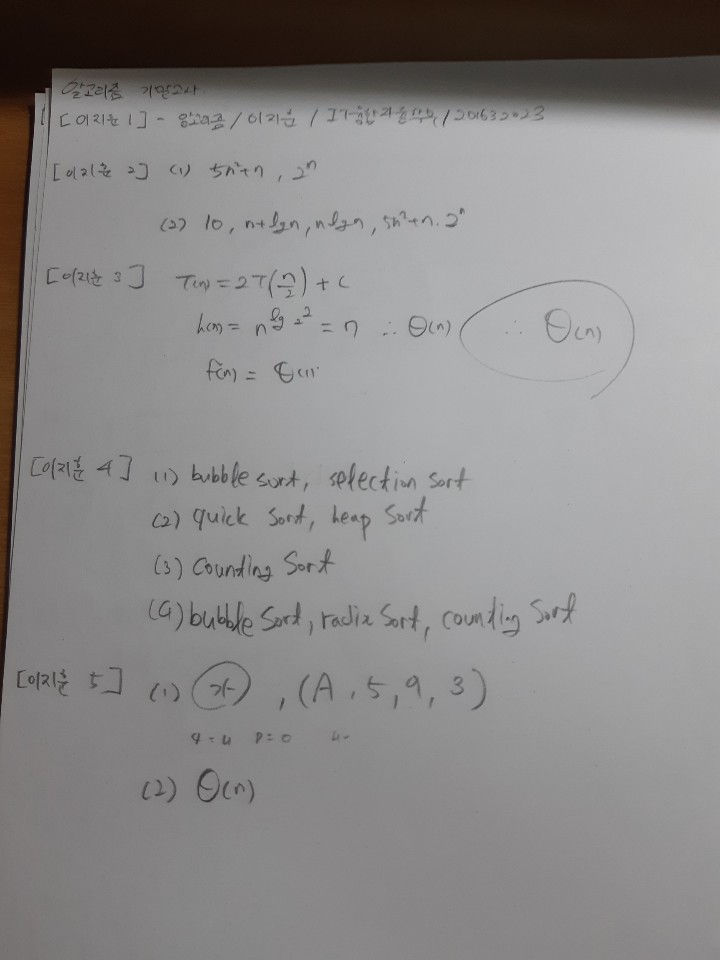 알고리즘 기말고사
[이지훈 1] - 알고리즘 / 이지훈 / IT융합자율학부 / 201632023
[이지훈 2] (1) 5n²+n, 2ⁿ
(2) 10, n+lgn, nlgn, 5n²+n, 2ⁿ
[이지훈 3] T(n) = 2T(n/2) + C
h(n) = n^lg₂2 = n ∴ Θ(n) ∴ Θ(n)
f(n) = Θ(1)
[이지훈 4] (1) bubble sort, selection sort
(2) quick sort, heap sort
(3) Counding Sort
(4) bubble Sort, radix Sort, counding Sort
[이지훈 5] (1) 가, (A, 5, 9, 3)
q = 4 p = 0
(2) Θ(n)